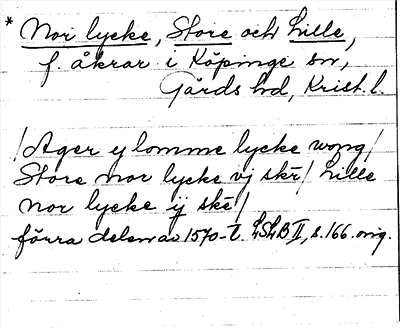 * Nor lycke, Store och Lille,
f. åkrar i Köpinge sn,
Gärds hd, Krist. l.
/Ager ij lomme lycke wong/
Store nor lycke vj ske/ Lille
nor lycke ij ske/
förra delen av 1570-t. LSLB II, s. 166. orig.